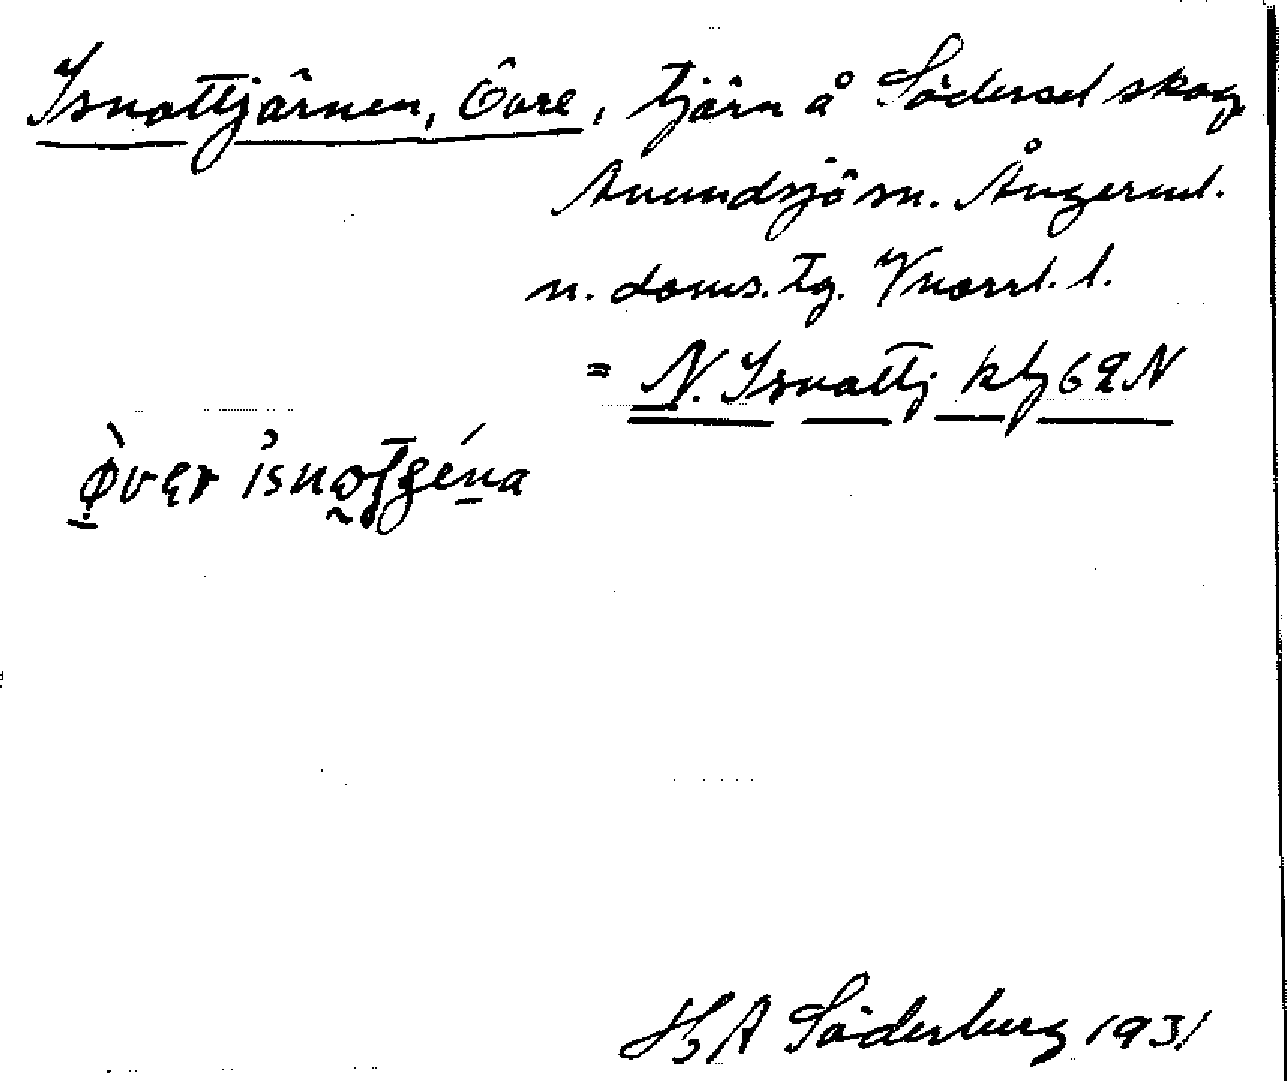 Isnattjärnen, Övre, tjärn å Södersel skog
Anundsjö sn. Ångerml.
n. doms. tg. Vnorrl. l.
= N. Isnattj kbl 62 N
H A Söderberg 1931